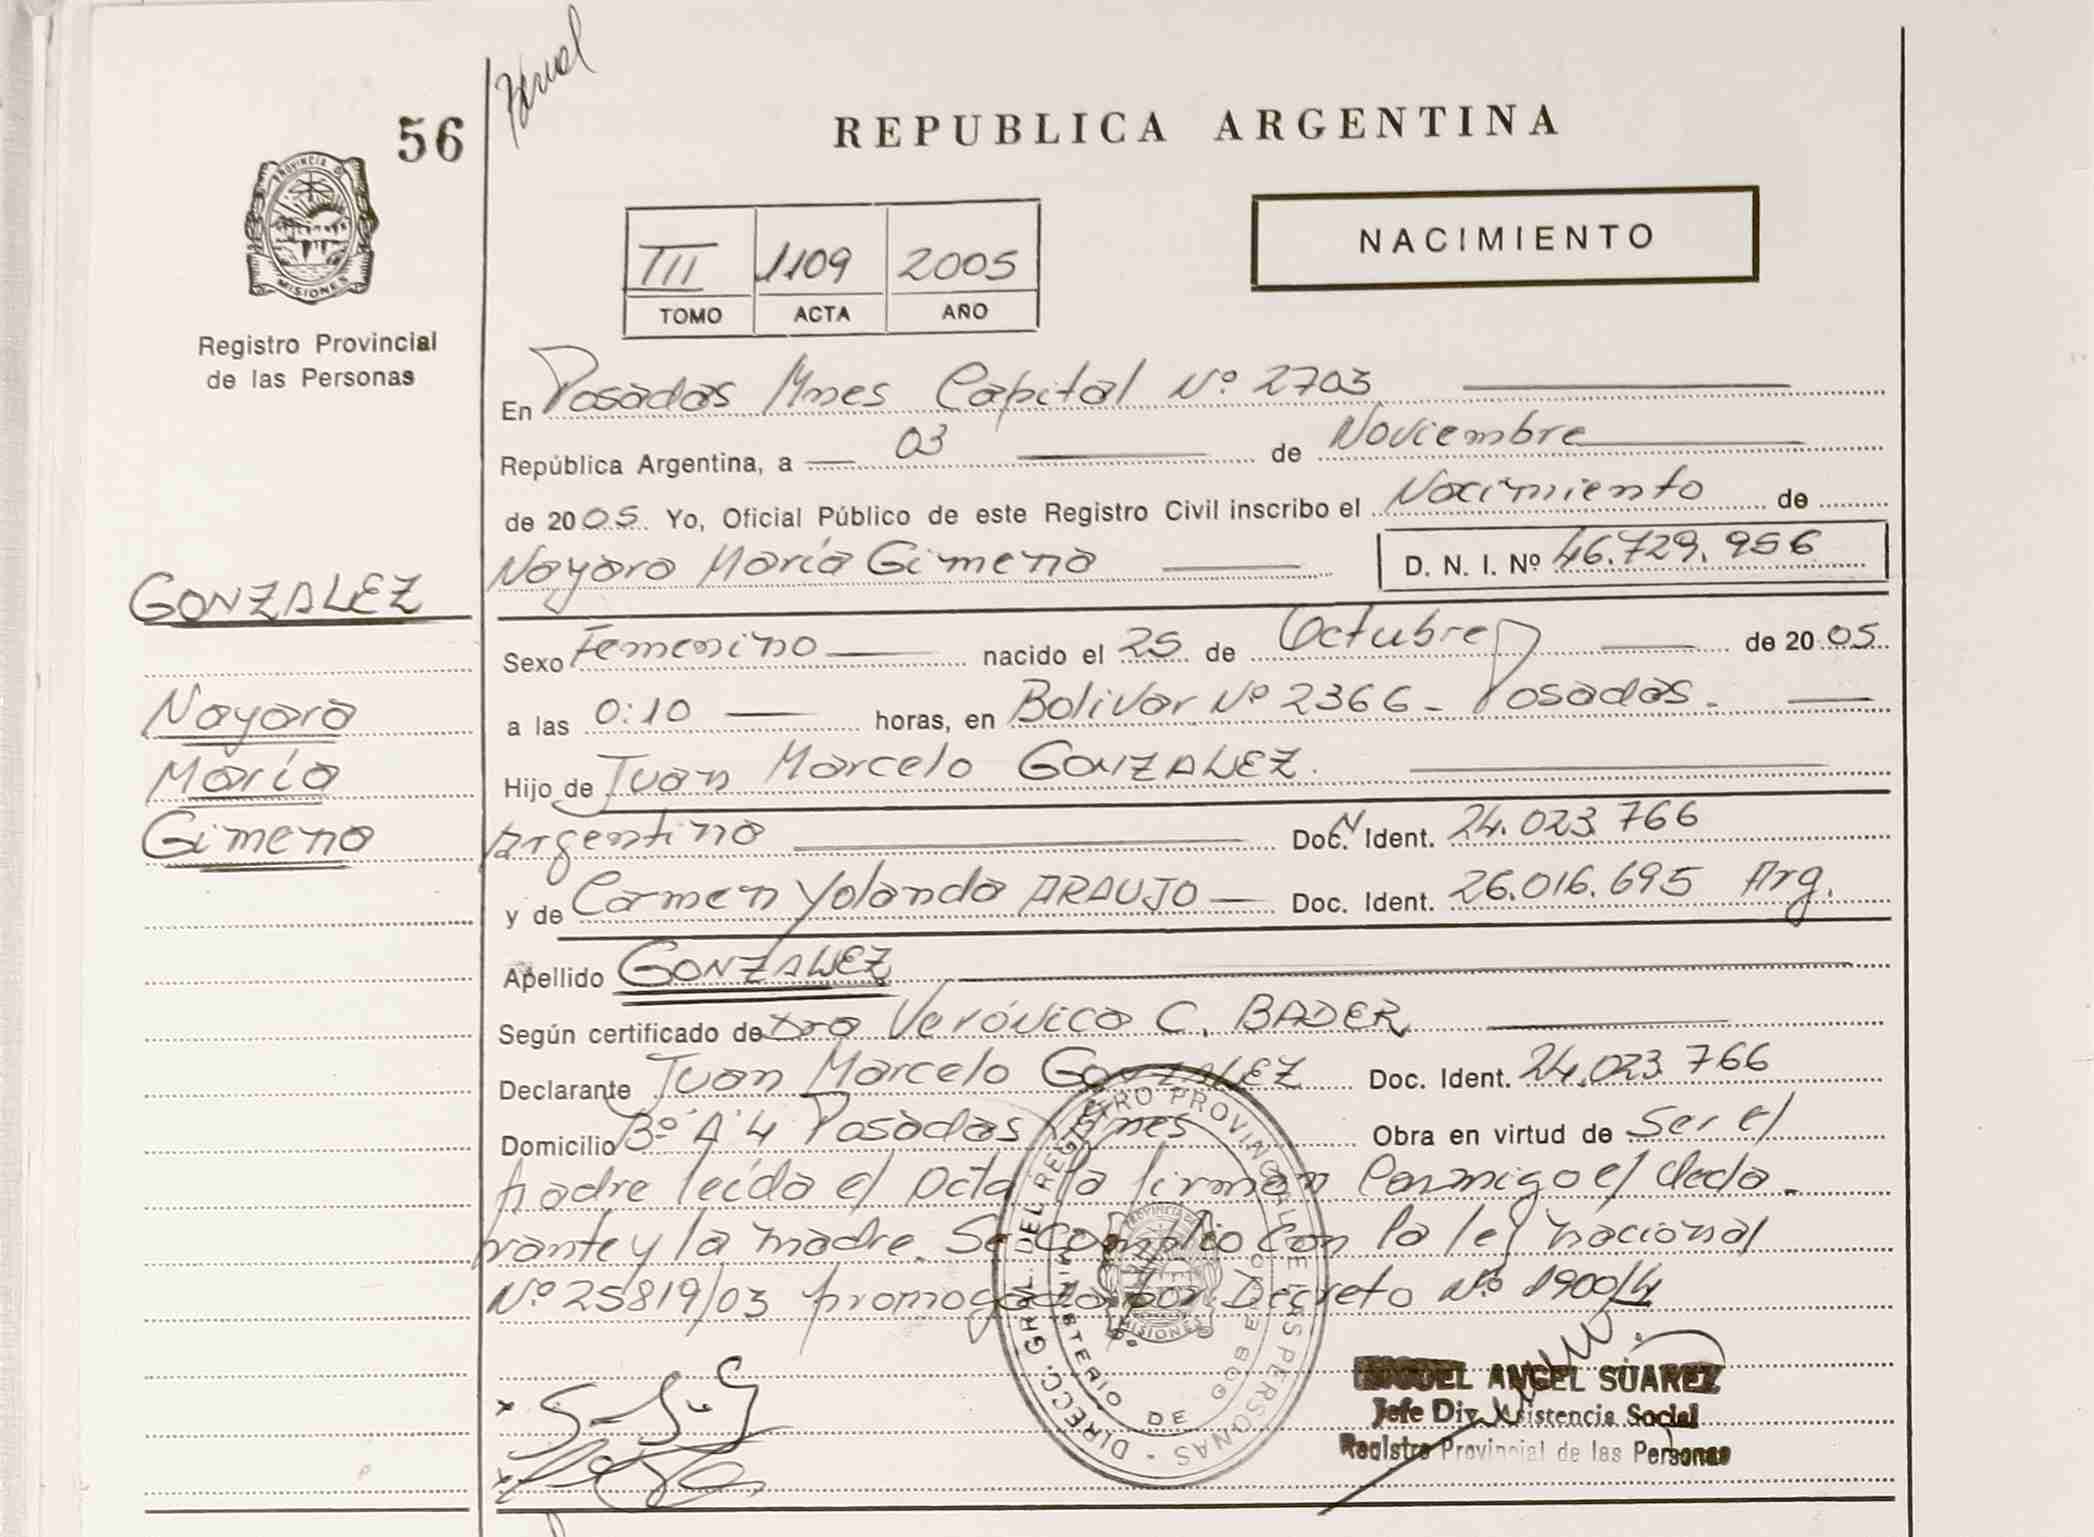 56
REPUBLICA ARGENTINA
PROVINCIA D
MISIONES
Registro Provincial
de las Personas
III 1109 2005
TOMO ACTA AÑO
NACIMIENTO
En Posadas Mnes Capital Nº 2703
República Argentina, a 03 de Noviembre
de 2005 Yo, Oficial Público de este Registro Civil inscribo el Nacimiento de
Nayara María Gimena D. N. I. Nº 46.729.956
GONZALEZ
Sexo Femenino nacido el 25 de Octubre de 2005
Nayara
a las 0:10 horas, en Bolivar Nº 2366 - Posadas.
María
Hijo de Juan Marcelo GONZALEZ.
Gimena
Argentino Doc. N Ident. 24.023.766
y de Carmen Yolanda ARAUJO Doc. Ident. 26.016.695 Arg.
Apellido GONZALEZ
Según certificado de Dra Verónica C. BADER
Declarante Juan Marcelo GONZALEZ Doc. Ident. 24.023.766
Domicilio Bº A'4 Posadas Mnes Obra en virtud de Ser el
padre leída el acta la firman conmigo el decla-
rante y la madre. Se cumplio con la ley nacional
Nº 25819/03 promogada por Decreto Nº 1900/4
DIRECC. GRAL. DEL REGISTRO PROVINCIAL DE LAS PERSONAS
MINISTERIO DE GOB
PROVINCIA DE
MISIONES
MIGUEL ANGEL SUAREZ
Jefe Div. Asistencia Social
Registro Provincial de las Personas